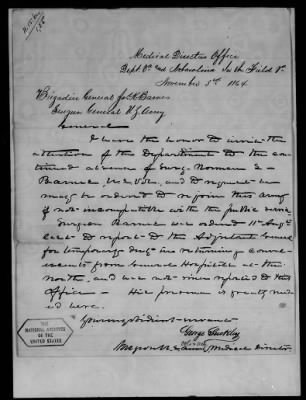 Medical Directors Office
Dept Va and N Carolina In the Field Va
November 3rd 1864.
Brigadier General Jos K Barnes
Surgeon General U.S. Army
General
I have the honor to invite the
attention of the Department to the con
tinued absence of Surg. Norman S.
Barnes U.S. Vols. and to request he
may be ordered to rejoin this army
if not incompatible with the public service
Surgeon Barnes was ordered 11th Augt
last to report to the Adjutant General
for temporary duty in returning conval
escents from General Hospitals at the
north, and has not since reported to this
Office — His presence is greatly need
ed here.
Your obedient servant
George Suckley
Surgeon Medical Director
THE
NATIONAL ARCHIVES
OF THE
UNITED STATES